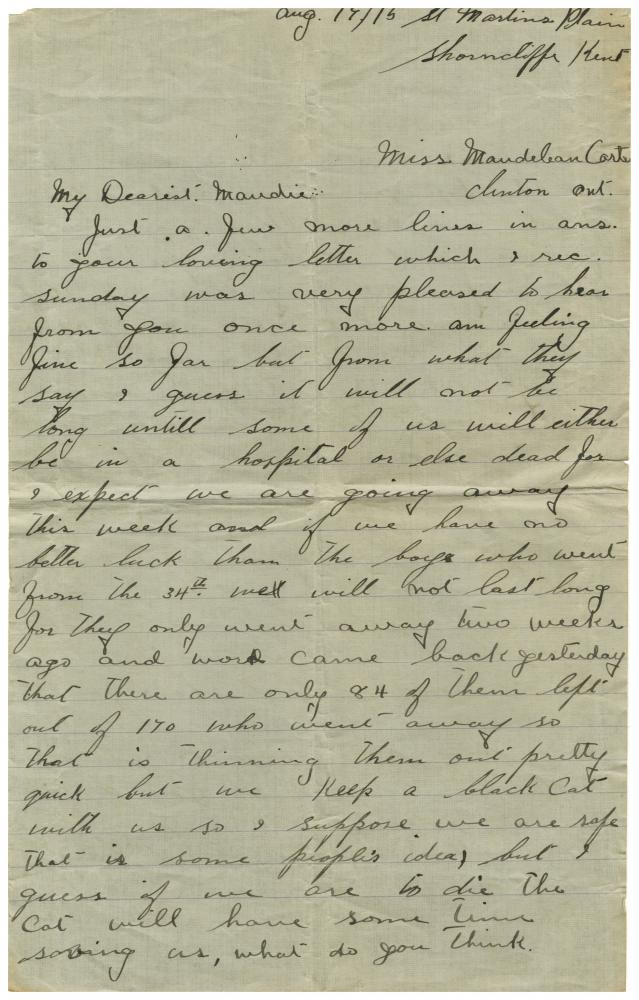 Aug. 17/15 St Martins Plain
Shorncliffe Kent
Miss Maudelean Carte
Clinton ont.
My Dearest. Maudie
Just a few more lines in ans.
to your loving letter which I rec.
sunday was very pleased to hear
from you once more. am feeling
fine so far but from what they
say I guess it will not be
long untill some of us will either
be in a hospital or else dead for
I expect we are going away
this week and if we have no
better luck tham the boys who went
from the 34th we will not last long
for they only went away two weeks
ago and word came back yesterday
that there are only 84 of them left
out of 170 who went away so
that is thinning them out pretty
quick but we keep a black Cat
with us so I suppose we are safe
that is some people's idea, but I
guess if we are to die the
Cat will have some time
saving us, what do you think.